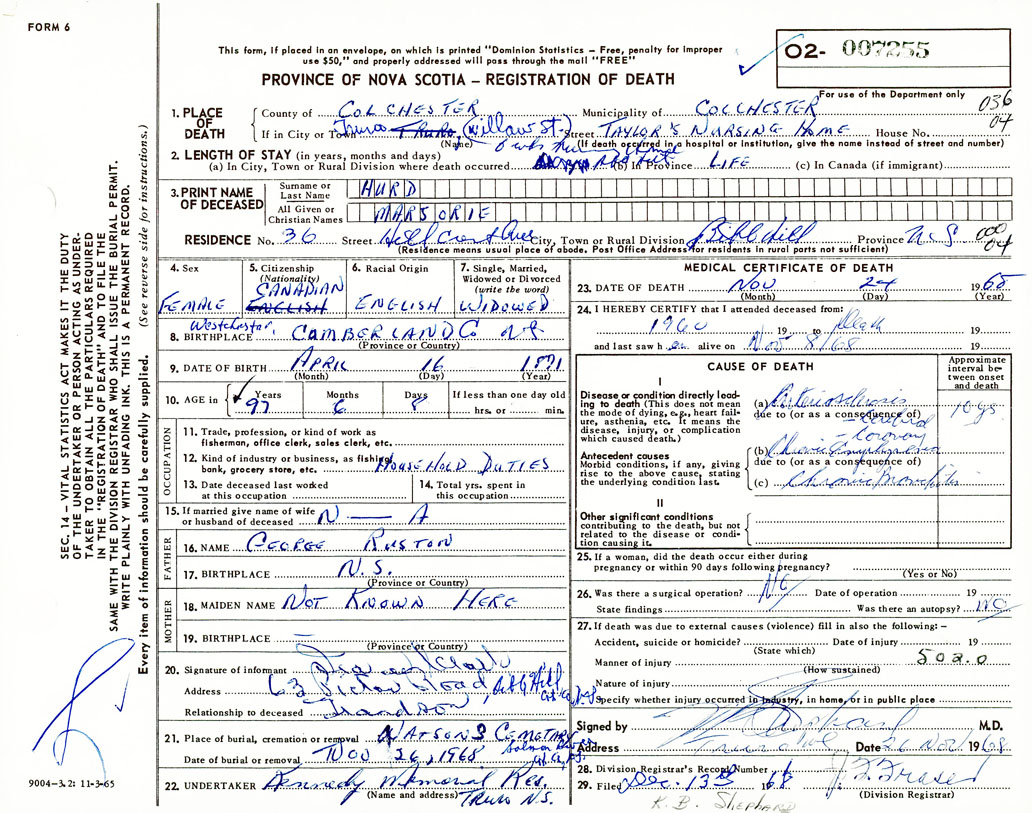 FORM 6
This form, if placed in an envelope, on which is printed "Dominion Statistics – Free, penalty for improper
use $50," and properly addressed will pass through the mail "FREE"
PROVINCE OF NOVA SCOTIA – REGISTRATION OF DEATH
02- 007255
For use of the Department only
036
04
1. PLACE OF DEATH
County of COLCHESTER Municipality of COLCHESTER
If in City or Town Truro (Willow St.) Street TAYLOR'S NURSING HOME House No.
(Name) (If death occurred in a hospital or institution, give the name instead of street and number)
2. LENGTH OF STAY (in years, months and days)
(a) In City, Town or Rural Division where death occurred (b) In Province LIFE (c) In Canada (if immigrant)
3. PRINT NAME OF DECEASED
Surname or Last Name HURD
All Given or Christian Names MARJORIE
RESIDENCE No. 36 Street City, Town or Rural Division Bible hill Province N S
000
04
(Residence means usual place of abode. Post Office Address for residents in rural parts not sufficient)
4. Sex FEMALE
5. Citizenship (Nationality) CANADIAN ENGLISH
6. Racial Origin ENGLISH
7. Single, Married, Widowed or Divorced (write the word) WIDOWED
Westchester
8. BIRTHPLACE CUMBERLAND Co NS
(Province or Country)
9. DATE OF BIRTH APRIL 16 1871
(Month) (Day) (Year)
10. AGE in Years 97 Months 6 Days 8 If less than one day old hrs. or min.
OCCUPATION
11. Trade, profession, or kind of work as
fisherman, office clerk, sales clerk, etc.
12. Kind of industry or business, as fishing,
bank, grocery store, etc. HOUSEHOLD DUTIES
13. Date deceased last worked
at this occupation
14. Total yrs. spent in
this occupation
15. If married give name of wife
or husband of deceased N — A
FATHER
16. NAME GEORGE RUSTON
17. BIRTHPLACE N.S.
(Province or Country)
MOTHER
18. MAIDEN NAME NOT KNOWN HERE
19. BIRTHPLACE –
(Province or Country)
20. Signature of informant
Address 63 Pictou Road, Bible Hill
Relationship to deceased Grandson
21. Place of burial, cremation or removal WATSONS CEMETARY
Date of burial or removal Nov 26, 1968
22. UNDERTAKER Kennedy Memorial Res.
(Name and address) Truro N.S.
MEDICAL CERTIFICATE OF DEATH
23. DATE OF DEATH Nov 24 1968
(Month) (Day) (Year)
24. I HEREBY CERTIFY that I attended deceased from:
1960 19 to Death 19
and last saw her alive on Nov 8/68 19
CAUSE OF DEATH
Approximate interval between onset and death
I
Disease or condition directly leading to death (This does not mean the mode of dying, e.g., heart failure, asthenia, etc. It means the disease, injury, or complication which caused death.)
(a) Arteriosclerosis 10 yrs
due to (or as a consequence of)
- cerebral
- coronary
Antecedent causes
Morbid conditions, if any, giving rise to the above cause, stating the underlying condition last.
(b) Chronic Emphysema
due to (or as a consequence of)
(c) Chronic Bronchitis
II
Other significant conditions
contributing to the death, but not related to the disease or condition causing it.
25. If a woman, did the death occur either during
pregnancy or within 90 days following pregnancy?
(Yes or No)
26. Was there a surgical operation? NO Date of operation 19
State findings Was there an autopsy? NO
27. If death was due to external causes (violence) fill in also the following: –
Accident, suicide or homicide? Date of injury 19
(State which)
Manner of injury 502.0
(How sustained)
Nature of injury
Specify whether injury occurred in industry, in home, or in public place
Signed by M.D.
Address Truro Date 26 Nov 1968
28. Division Registrar's Record Number
29. Filed Dec. 13th 1968 J. F. Fraser
(Division Registrar)
K. B. SHEPHARD
SEC. 14 – VITAL STATISTICS ACT MAKES IT THE DUTY
OF THE UNDERTAKER OR PERSON ACTING AS UNDER-
TAKER TO OBTAIN ALL THE PARTICULARS REQUIRED
IN THE "REGISTRATION OF DEATH" AND TO FILE THE
SAME WITH THE DIVISION REGISTRAR WHO SHALL ISSUE THE BURIAL PERMIT.
WRITE PLAINLY WITH UNFADING INK. THIS IS A PERMANENT RECORD.
Every item of information should be carefully supplied. (See reverse side for instructions.)
9004-3.2: 11-3-65